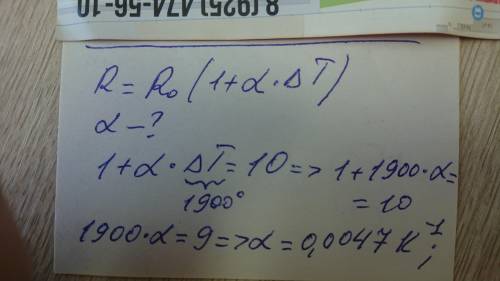 8 (925) 474-56-10
R = R₀ (1+α·ΔT)
α - ?
1+α·ΔT = 10 => 1+1900·α =
1900°
= 10
1900·α = 9 => α = 0,0047 K⁻¹;